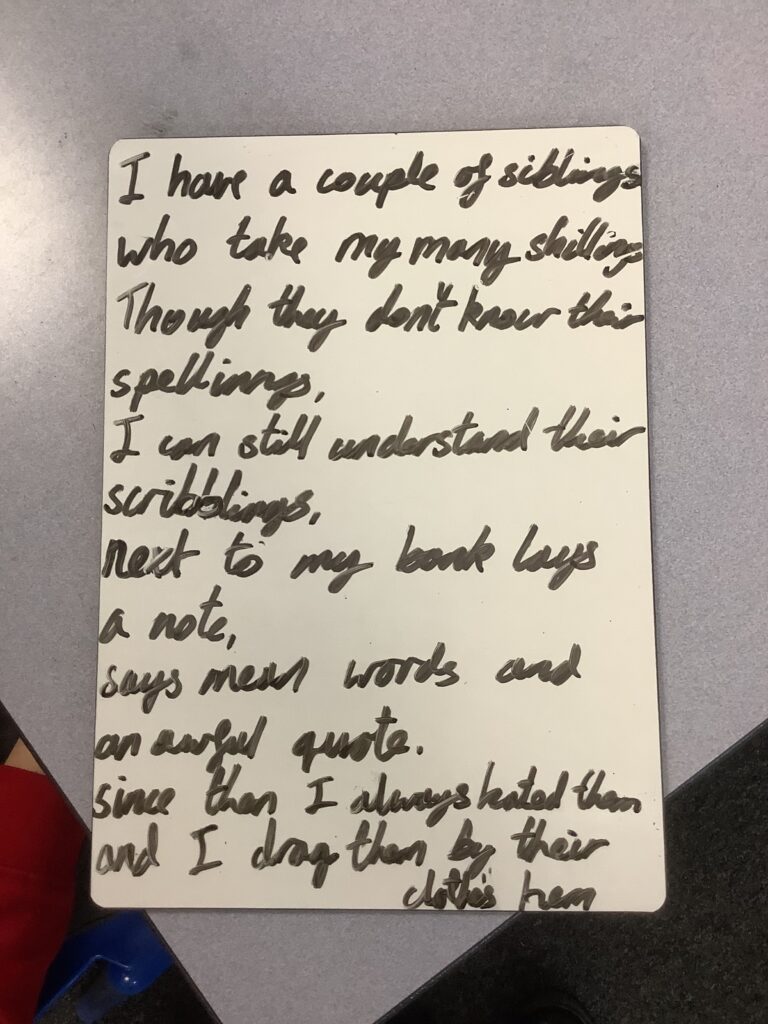 I have a couple of siblings
who take my many shillings
Though they don't know their
spellinngs,
I can still understand their
scribblings,
next to my bank lays
a note,
says mean words and
an awful quote.
since then I always hated them
and I drag them by their
clothes hem